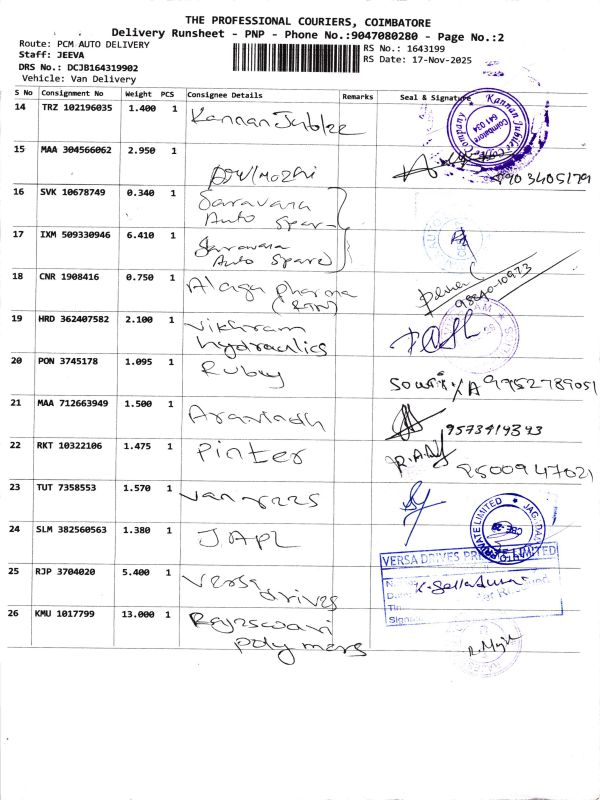 THE PROFESSIONAL COURIERS, COIMBATORE
Delivery Runsheet - PNP - Phone No.:9047080280 - Page No.:2
Route: PCM AUTO DELIVERY
Staff: JEEVA
DRS No.: DCJB164319902
Vehicle: Van Delivery
RS No.: 1643199
RS Date: 17-Nov-2025
S No Consignment No Weight PCS Consignee Details Remarks Seal & Signature
14 TRZ 102196035 1.400 1 Kannan Jublee
Kannan Jubilee Coffee Company
Coimbatore
641 034
15 MAA 304566062 2.950 1
9903405179
16 SVK 10678749 0.340 1 Saravana
Auto Spar
17 IXM 509330946 6.410 1 Saravana
Auto Spare)
18 CNR 1908416 0.750 1 Alaga pharma
98840-10973
19 HRD 362407582 2.100 1 Vikhram
hydraulics
20 PON 3745178 1.095 1 Rubuy
9952789051
21 MAA 712663949 1.500 1 Aravindh
9573414343
22 RKT 10322106 1.475 1 Pinter
9500947021
23 TUT 7358553 1.570 1
24 SLM 382560563 1.380 1 JAPL
PRIVATE LIMITED
25 RJP 3704020 5.400 1 Versa
drives
VERSA DRIVES PRIVATE LIMITED
26 KMU 1017799 13.000 1 Rajeswari
polymers